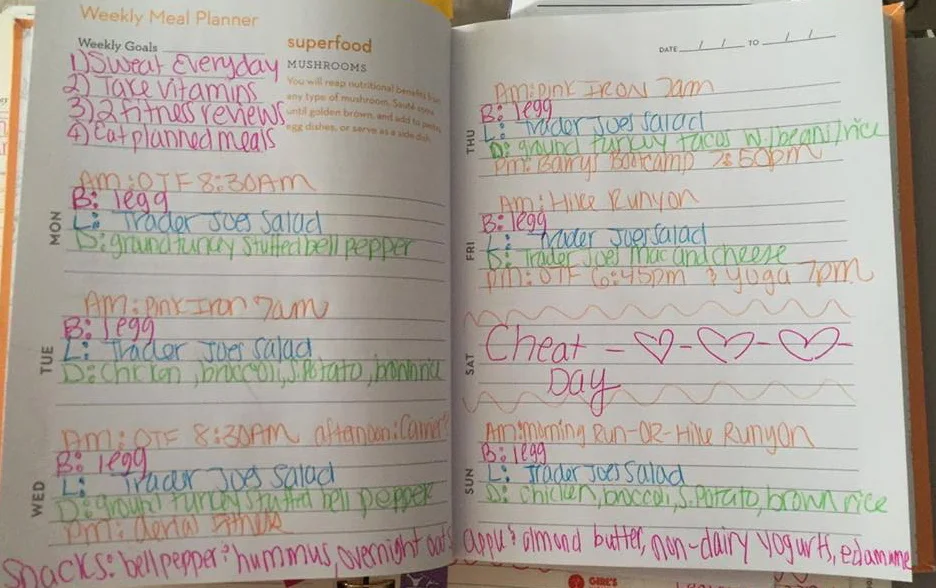 Weekly Meal Planner
Weekly Goals
1) Sweat Everyday
2) Take vitamins
3) 2 fitness reviews
4) Eat planned meals
superfood
MUSHROOMS
You will reap nutritional benefits from
any type of mushroom. Sauté some
until golden brown, and add to pasta,
egg dishes, or serve as a side dish.
MON
Am: OTF 8:30AM
B: 1egg
L: Trader Joes Salad
D: ground turkey stuffed bell pepper
TUE
Am: Pink Iron 7am
B: 1egg
L: Trader Joes Salad
D: Chicken, broccoli, S.Potato,
WED
Am: OTF 8:30AM afternoon:
B: 1egg
L: Trader Joes Salad
D: ground turkey stuffed bell pepper
Pm:
DATE / / TO / /
THU
Am: Pink Iron 7am
B: 1egg
L: Trader Joes Salad
D: ground turkey tacos w/bean/rice
Pm: Barrys Bootcamp 7:50pm
FRI
Am: Hike Runyon
B: 1egg
L: Trader Joes Salad
D: Trader Joes Mac and cheese
Pm: OTF 6:45pm & yoga 7pm
SAT
Cheat
Day
SUN
Am: morning Run-OR-Hike Runyon
B: 1egg
L: Trader Joes Salad
D: Chicken, broccoli, S.Potato, brown rice
Snacks: bell pepper & hummus, overnight oats, apple & almond butter, non-dairy yogurts, edamame
GIRL'S